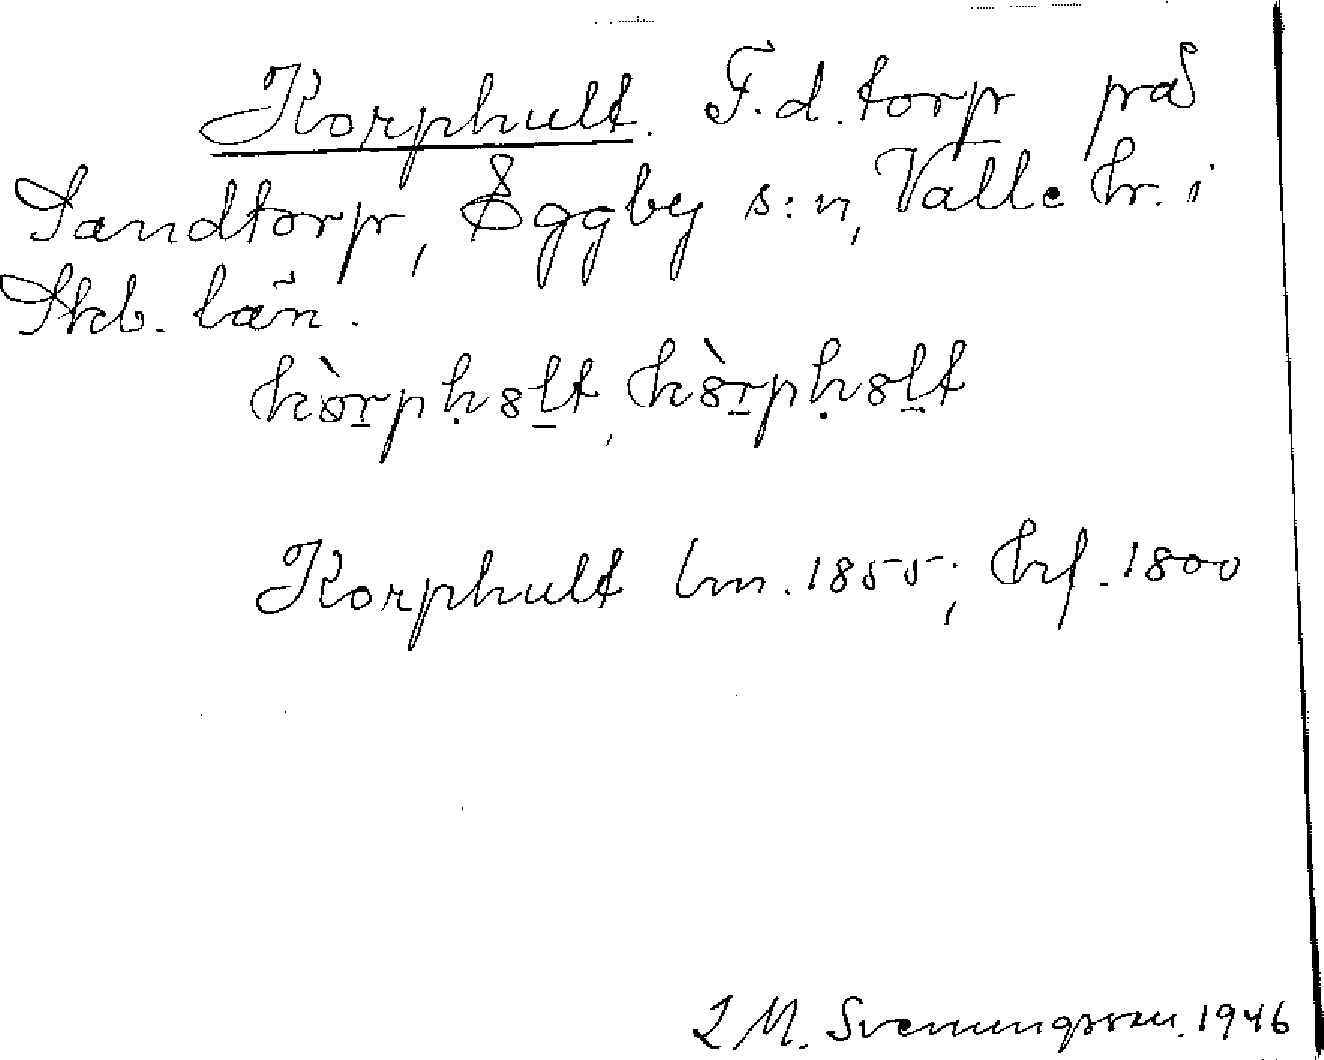 Korphult. F.d. torp på
Sandtorp, Eggby s:n, Valle hr. i
Skb. län.
kòrpḥ8lt, kòrpḥ8lt
Korphult lm. 1855; hf. 1800
L M. Svenungsson. 1946